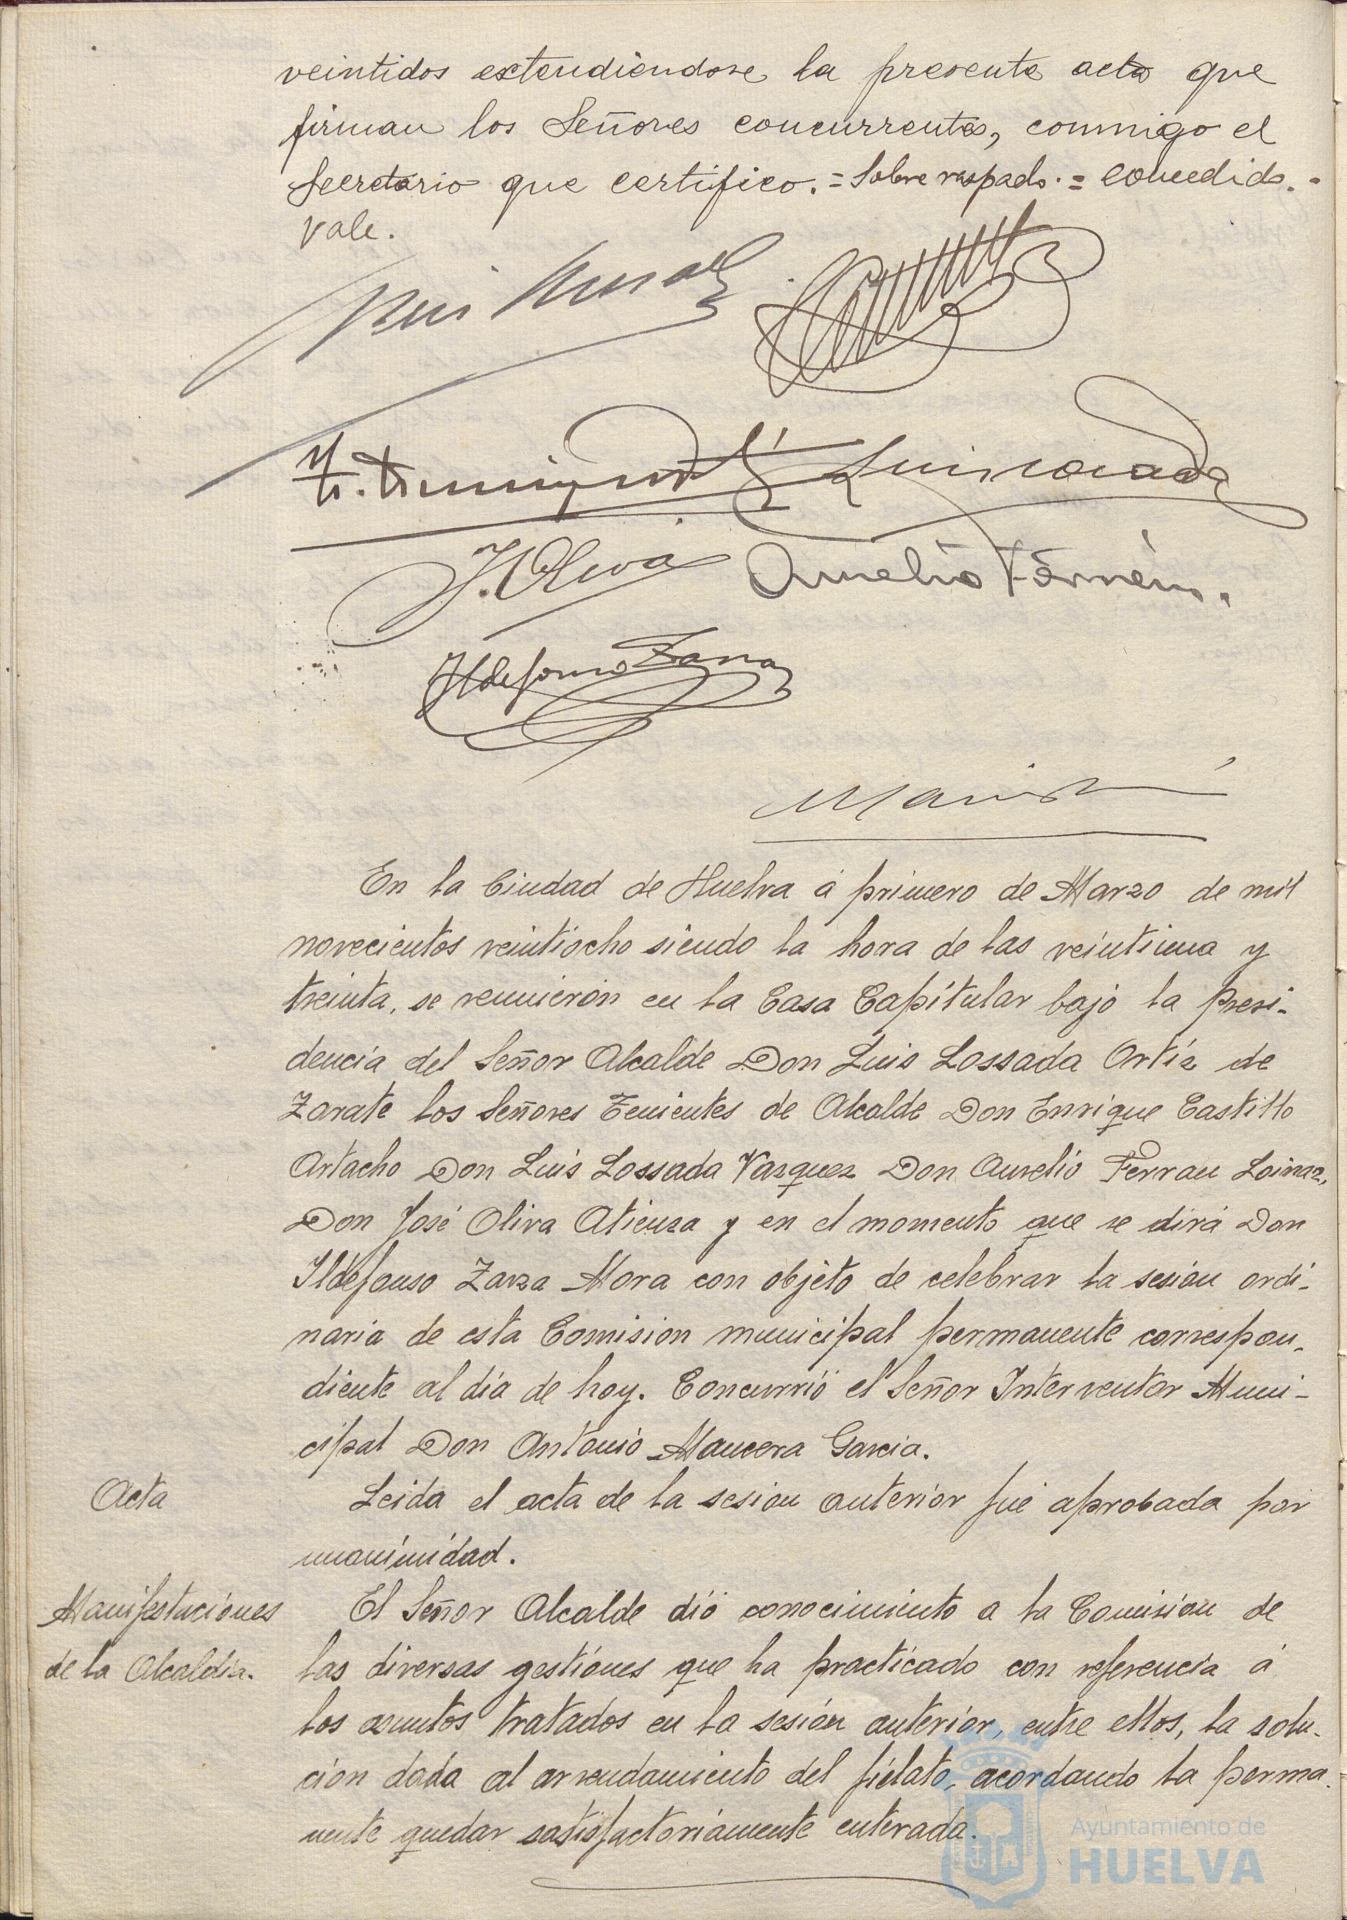 veintidos extendiendose la presente acta que
firman los Señores concurrentes, conmigo el
Secretario que certifico. = Sobre raspado. = concedido. =
vale.
J. Oliva
Aurelio Ferrán.
Ildefonso Zarza
En la Ciudad de Huelva á primero de Marzo de mil
novecientos veintiocho siendo la hora de las veintiuna y
treinta, se reunieron en la Casa Capitular bajo la presi-
dencia del Señor Alcalde Don Luis Lossada Ortiz de
Zarate los Señores Tenientes de Alcalde Don Enrique Castillo
Artacho Don Luis Lossada Vazquez Don Aurelio Ferrau Loinaz,
Don José Oliva Atienza y en el momento que se dirá Don
Ildefonso Zarza Mora con objeto de celebrar la sesion ordi-
naria de esta Comision municipal permanente correspon-
diente al dia de hoy. Concurrió el Señor Interventor Muni-
cipal Don Antonio Mancera Garcia.
Acta
Leida el acta de la sesion anterior fué aprobada por
unanimidad.
Manifestaciones
de la Alcaldia.
El Señor Alcalde dió conocimiento a la Comision de
las diversas gestiones que ha practicado con referencia á
los asuntos tratados en la sesión anterior, entre ellos, la solu-
cion dada al arrendamiento del fielato, acordando la perma-
nente quedar satisfactoriamente enterada.
Ayuntamiento de
HUELVA